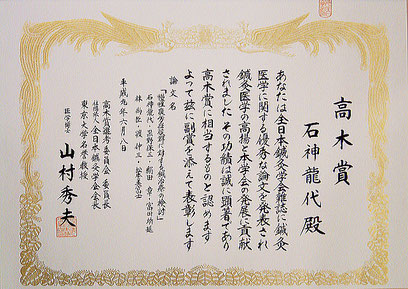 高木賞
石神龍代 殿
あなたは全日本鍼灸学会雑誌に鍼灸
医学に関する優秀な論文を発表され
鍼灸医学の高揚と本学会の発展に貢献
されました その功績は誠に顕著であり
高木賞に相当するものと認めます
よって茲に副賞を添えて表彰します
論文名
石神龍代・黒野保三
平成九年六月八日
高木賞選考委員会 委員長
全日本鍼灸学会会長
東京大学名誉教授
医学博士 山村秀夫